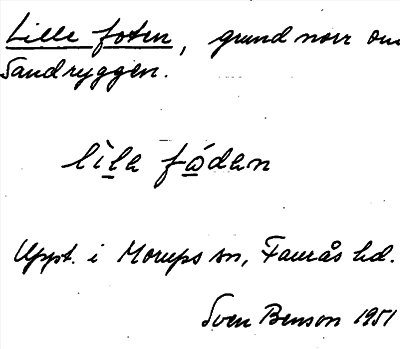 Lille foten, grund norr om
Sandryggen.
lìle fóden
Uppt. i Morups sn, Faurås hd.
Sven Benson 1951